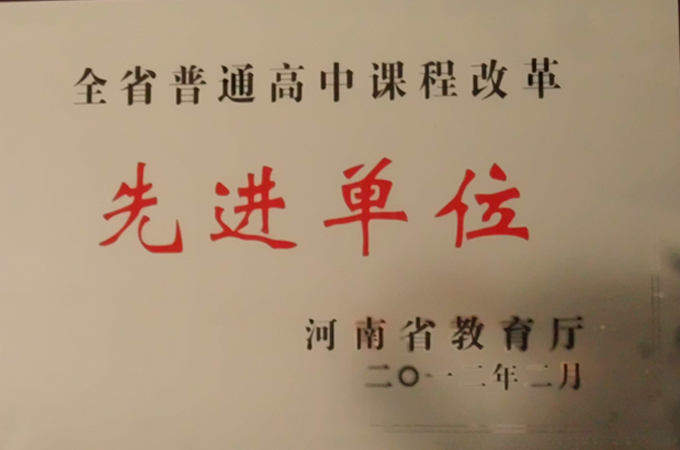 全省普通高中课程改革
先进单位
河南省教育厅
二〇一二年二月